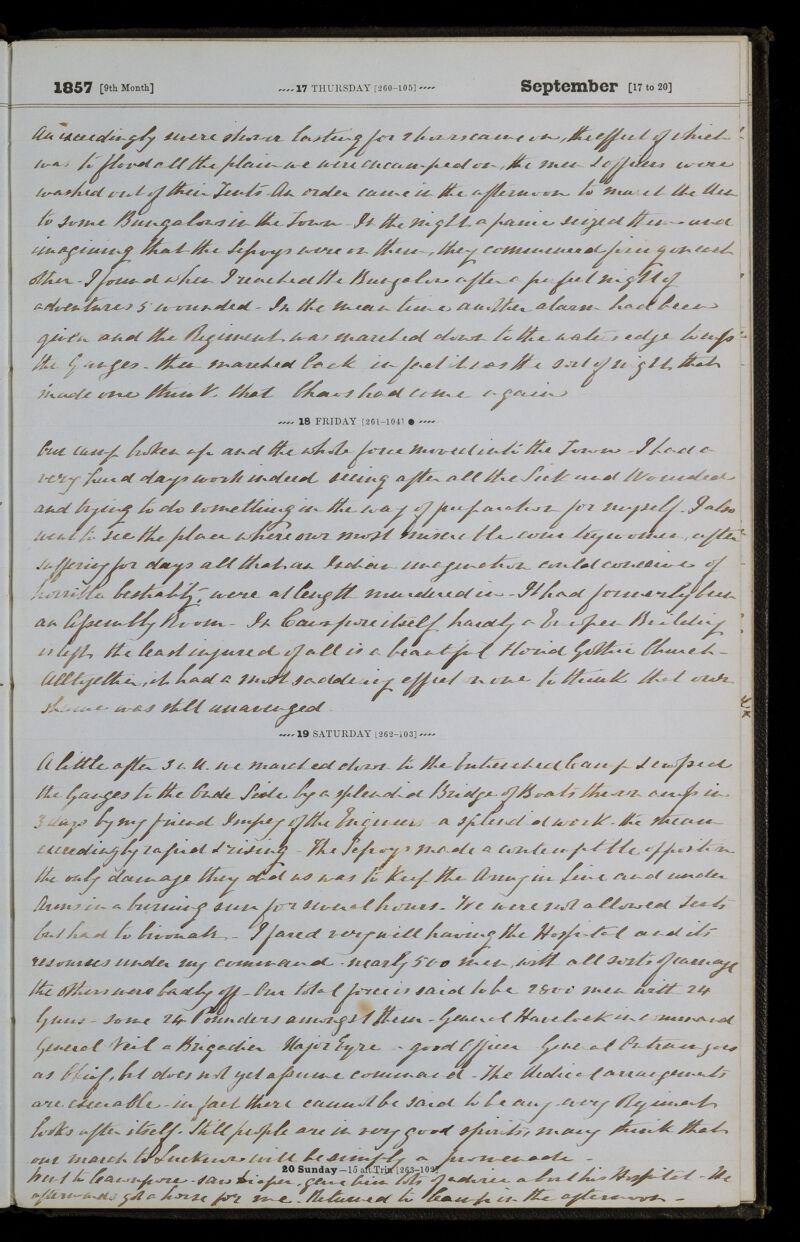 1857 [9th Month] ----17 THURSDAY [260-105]---- September [17 to 20]
An exceedingly severe shower lasting for 2 hours came on, the effect of which
was to flood all the plain we were encamped on, the men & officers were
washed out of their Tents. An order came in the afternoon to march the Men
to some Bungalows in the Town - In the night a panic seized them and
imagining that the Sepoys were on them, they commenced firing on each
other - I found when I reached the Bungalow after a perfect night of
adventures 5 wounded - In the mean time another alarm had been
given and the Regiment was marched down to the waters edge to
the Ganges - then marched back in fact it was the sort of night that
made one think that Chaos had come again
---- 18 FRIDAY [261-104] ● ----
Our camp broken up and the whole force moved into the Town - I had a
very hard days work indeed seeing after all the Sick and Wounded
and trying to do something in the way of preparation for myself. I also
went to see the place where our most miserable country women, after
suffering for days all that an Indian imagination could conceive of
horrible bestiality, were at length murdered in - It had formerly been
an Assembly Room - In Cawnpore itself hardly a European Building
is left, the least injured of all is a beautiful Gothic Church -
Alltogether, it had a most saddening effect on one to think that our
shame was still unavenged
----19 SATURDAY [262-103]----
A little after 3 a.m. we marched down to the Entrenched Camp & crossed
the Ganges to the Oude Side by a splendid Bridge of Boats thrown across in
3 days by my friend Impey of the Engineers - a splendid work. the stream
exceedingly rapid & rising - The Sepoys made a contemptible opposition
the only damage they did us was to keep the Army in line and under
Arms in a burning sun for several hours. We were not allowed Tents
but had to bivouac - I fared very well having the Hospital and its
resources under my command - nearly 500 men, with all sorts of carriage
the others were badly off - Our total force is said to be 2800 men with 24
Guns - some 24 Pounders amongst them - General Havelock in command
General Neil a Brigadier Major Eyre - good Officer General Outram goes
as Chief, but does not yet assume command - The Medical arrangements
are - in fact there cannot be said to be any every Regiment
looks after itself. Still people are in very good spirits, many think that
our march to Lucknow will be simply a promenade -
20 Sunday—15 aft. Trin [263-102]
Went to Cawnpore - saw gave him lots of advice about his Hospital - He
afterwards got a horse for me. Returned to Camp in the afternoon -